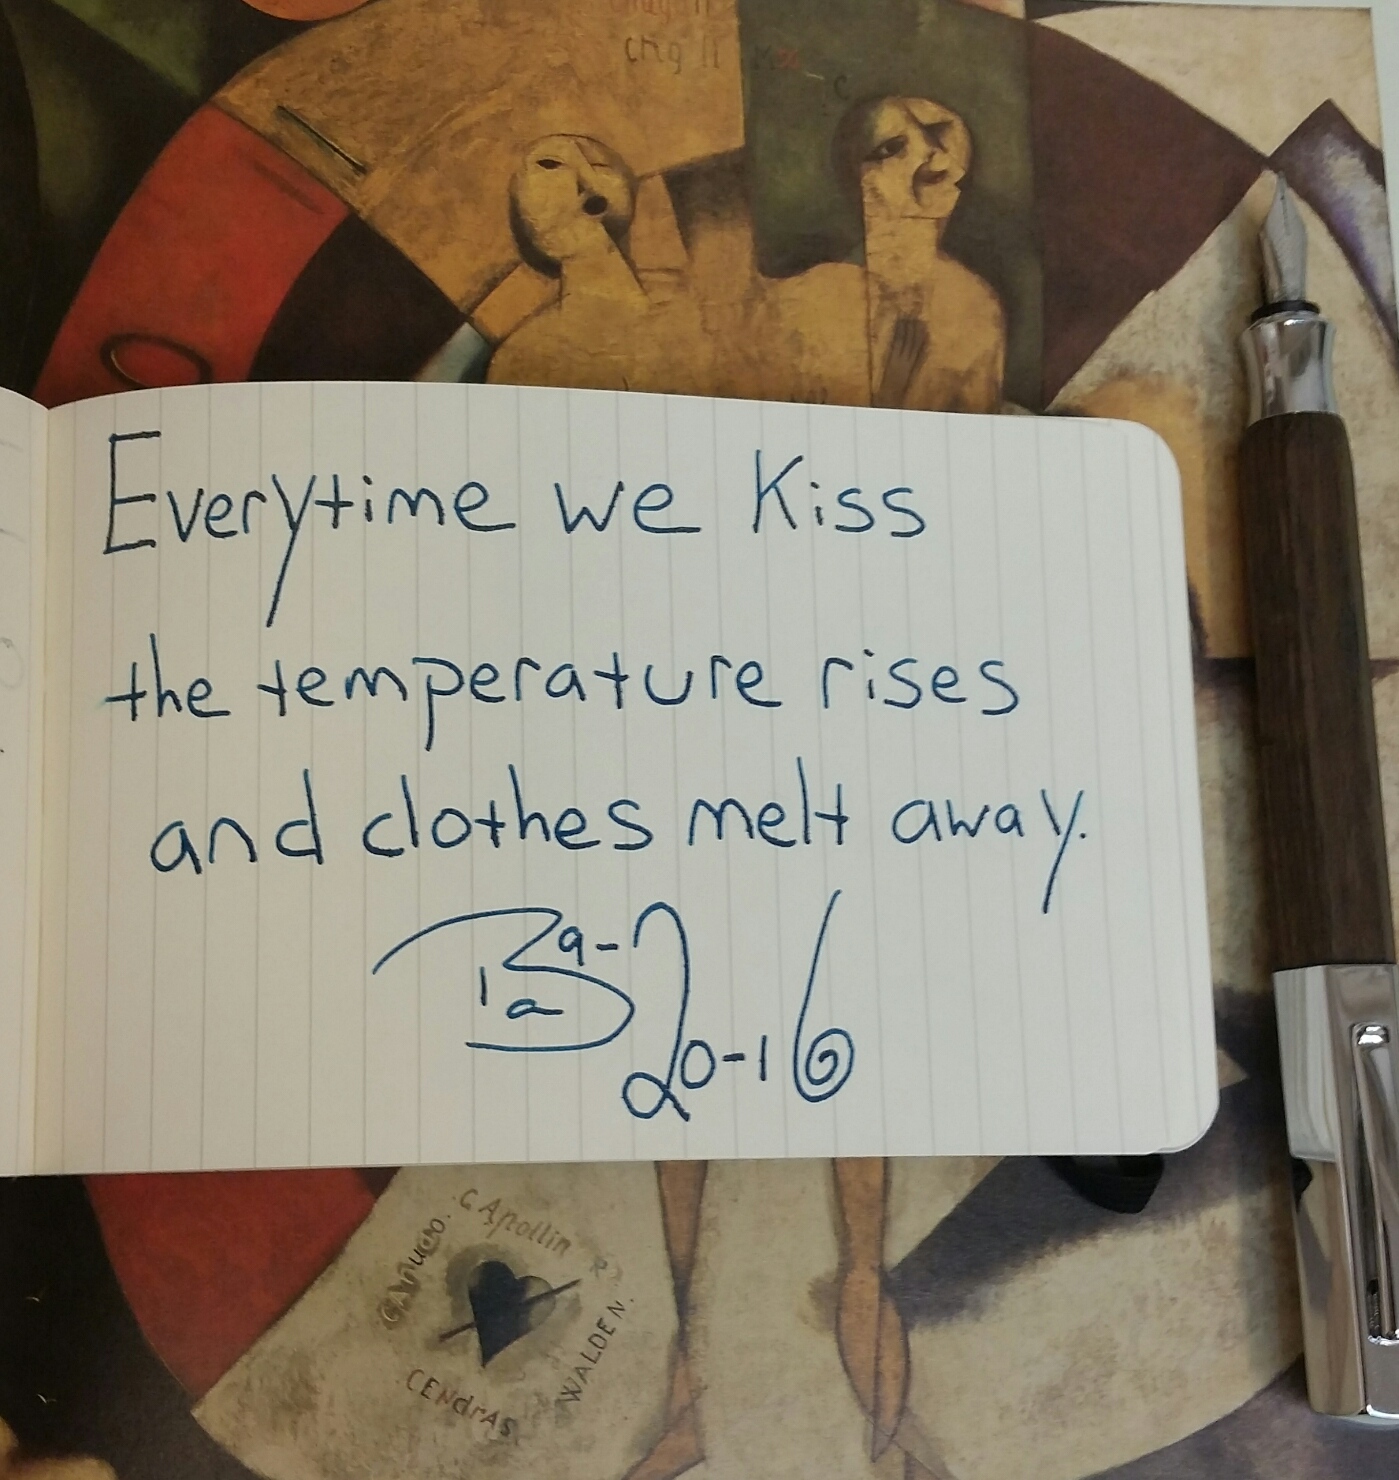 chg ll
Everytime we Kiss
the temperature rises
and clothes melt away.
9-20-16
C Apollin
CANUDO.
WALDEN.
CENdrAS